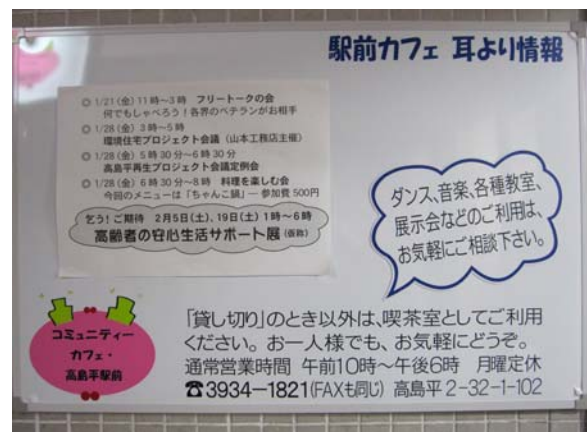 駅前カフェ 耳より情報
◎ 1/21(金)11時～3時 フリートークの会
何でもしゃべろう!各界のベテランがお相手
◎ 1/28(金)3時～5時
環境住宅プロジェクト会議(山本工務店主催)
◎ 1/28(金)5時30分～6時30分
高島平再生プロジェクト会議定例会
◎ 1/28(金)6時30分～8時 料理を楽しむ会
今回のメニューは「ちゃんこ鍋」― 参加費500円
乞う!ご期待 2月5日(土)、19日(土)1時～6時
高齢者の安心生活サポート展(仮称)
ダンス、音楽、各種教室、
展示会などのご利用は、
お気軽にご相談下さい。
コミュニティー
カフェ・
高島平駅前
「貸し切り」のとき以外は、喫茶室としてご利用
ください。お一人様でも、お気軽にどうぞ。
通常営業時間 午前10時～午後6時 月曜定休
☎3934-1821(FAXも同じ) 高島平2-32-1-102